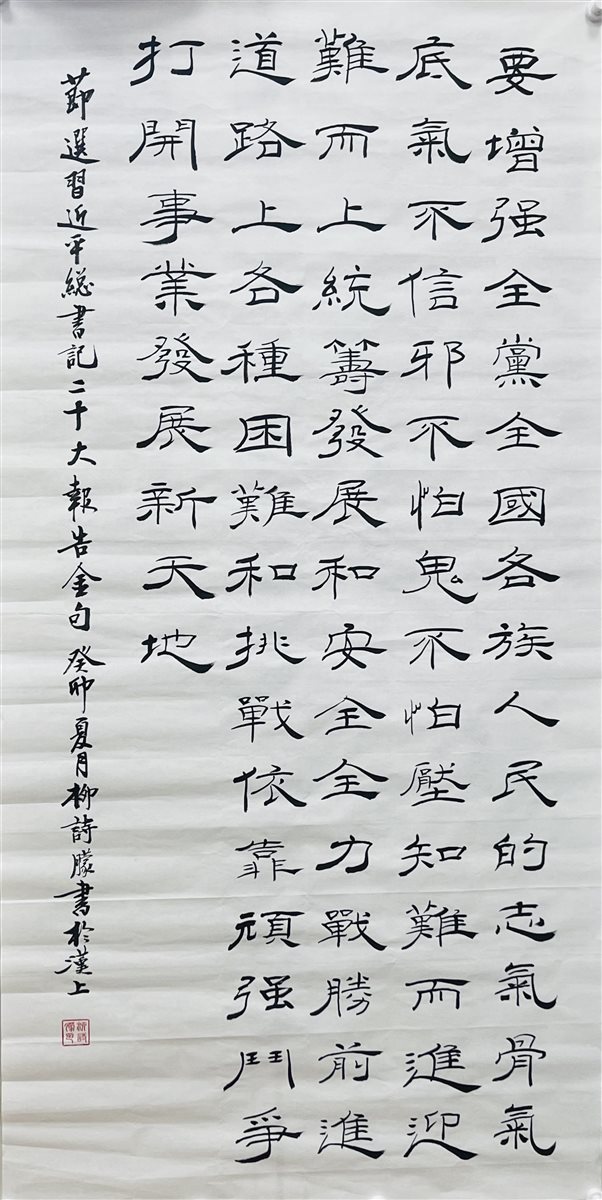 要增强全黨全國各族人民的志氣骨氣
底氣不信邪不怕鬼不怕壓知難而進迎
難而上統籌發展和安全全力戰勝前進
道路上各種困難和挑戰依靠頑强鬥爭
打開事業發展新天地
節選習近平総書記二十大報告金句癸卯夏月柳詩朦書於漢上